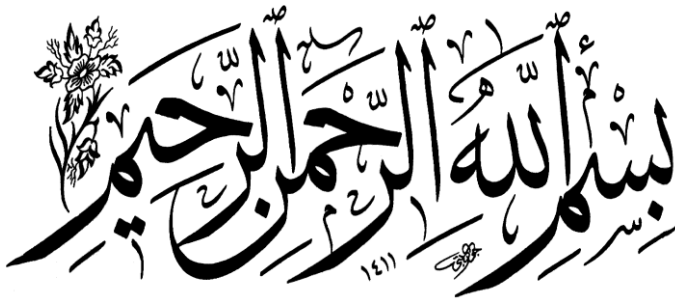 بِسْمِ ٱللَّهِ ٱلرَّحْمَٰنِ ٱلرَّحِيمِ
١٤١١